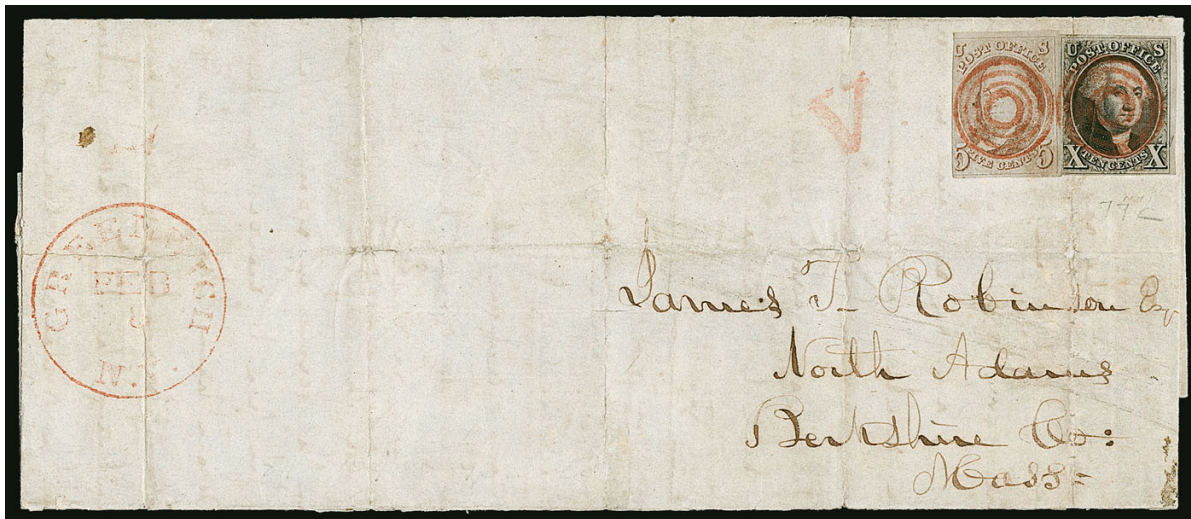 U S
POST OFFICE
FIVE CENTS
5 5
U S
POST OFFICE
X TEN CENTS X
V
GREENWICH
FEB
8
N.Y.
James T. Robinson Esq.
North Adams
Berkshire Co:
Mass=